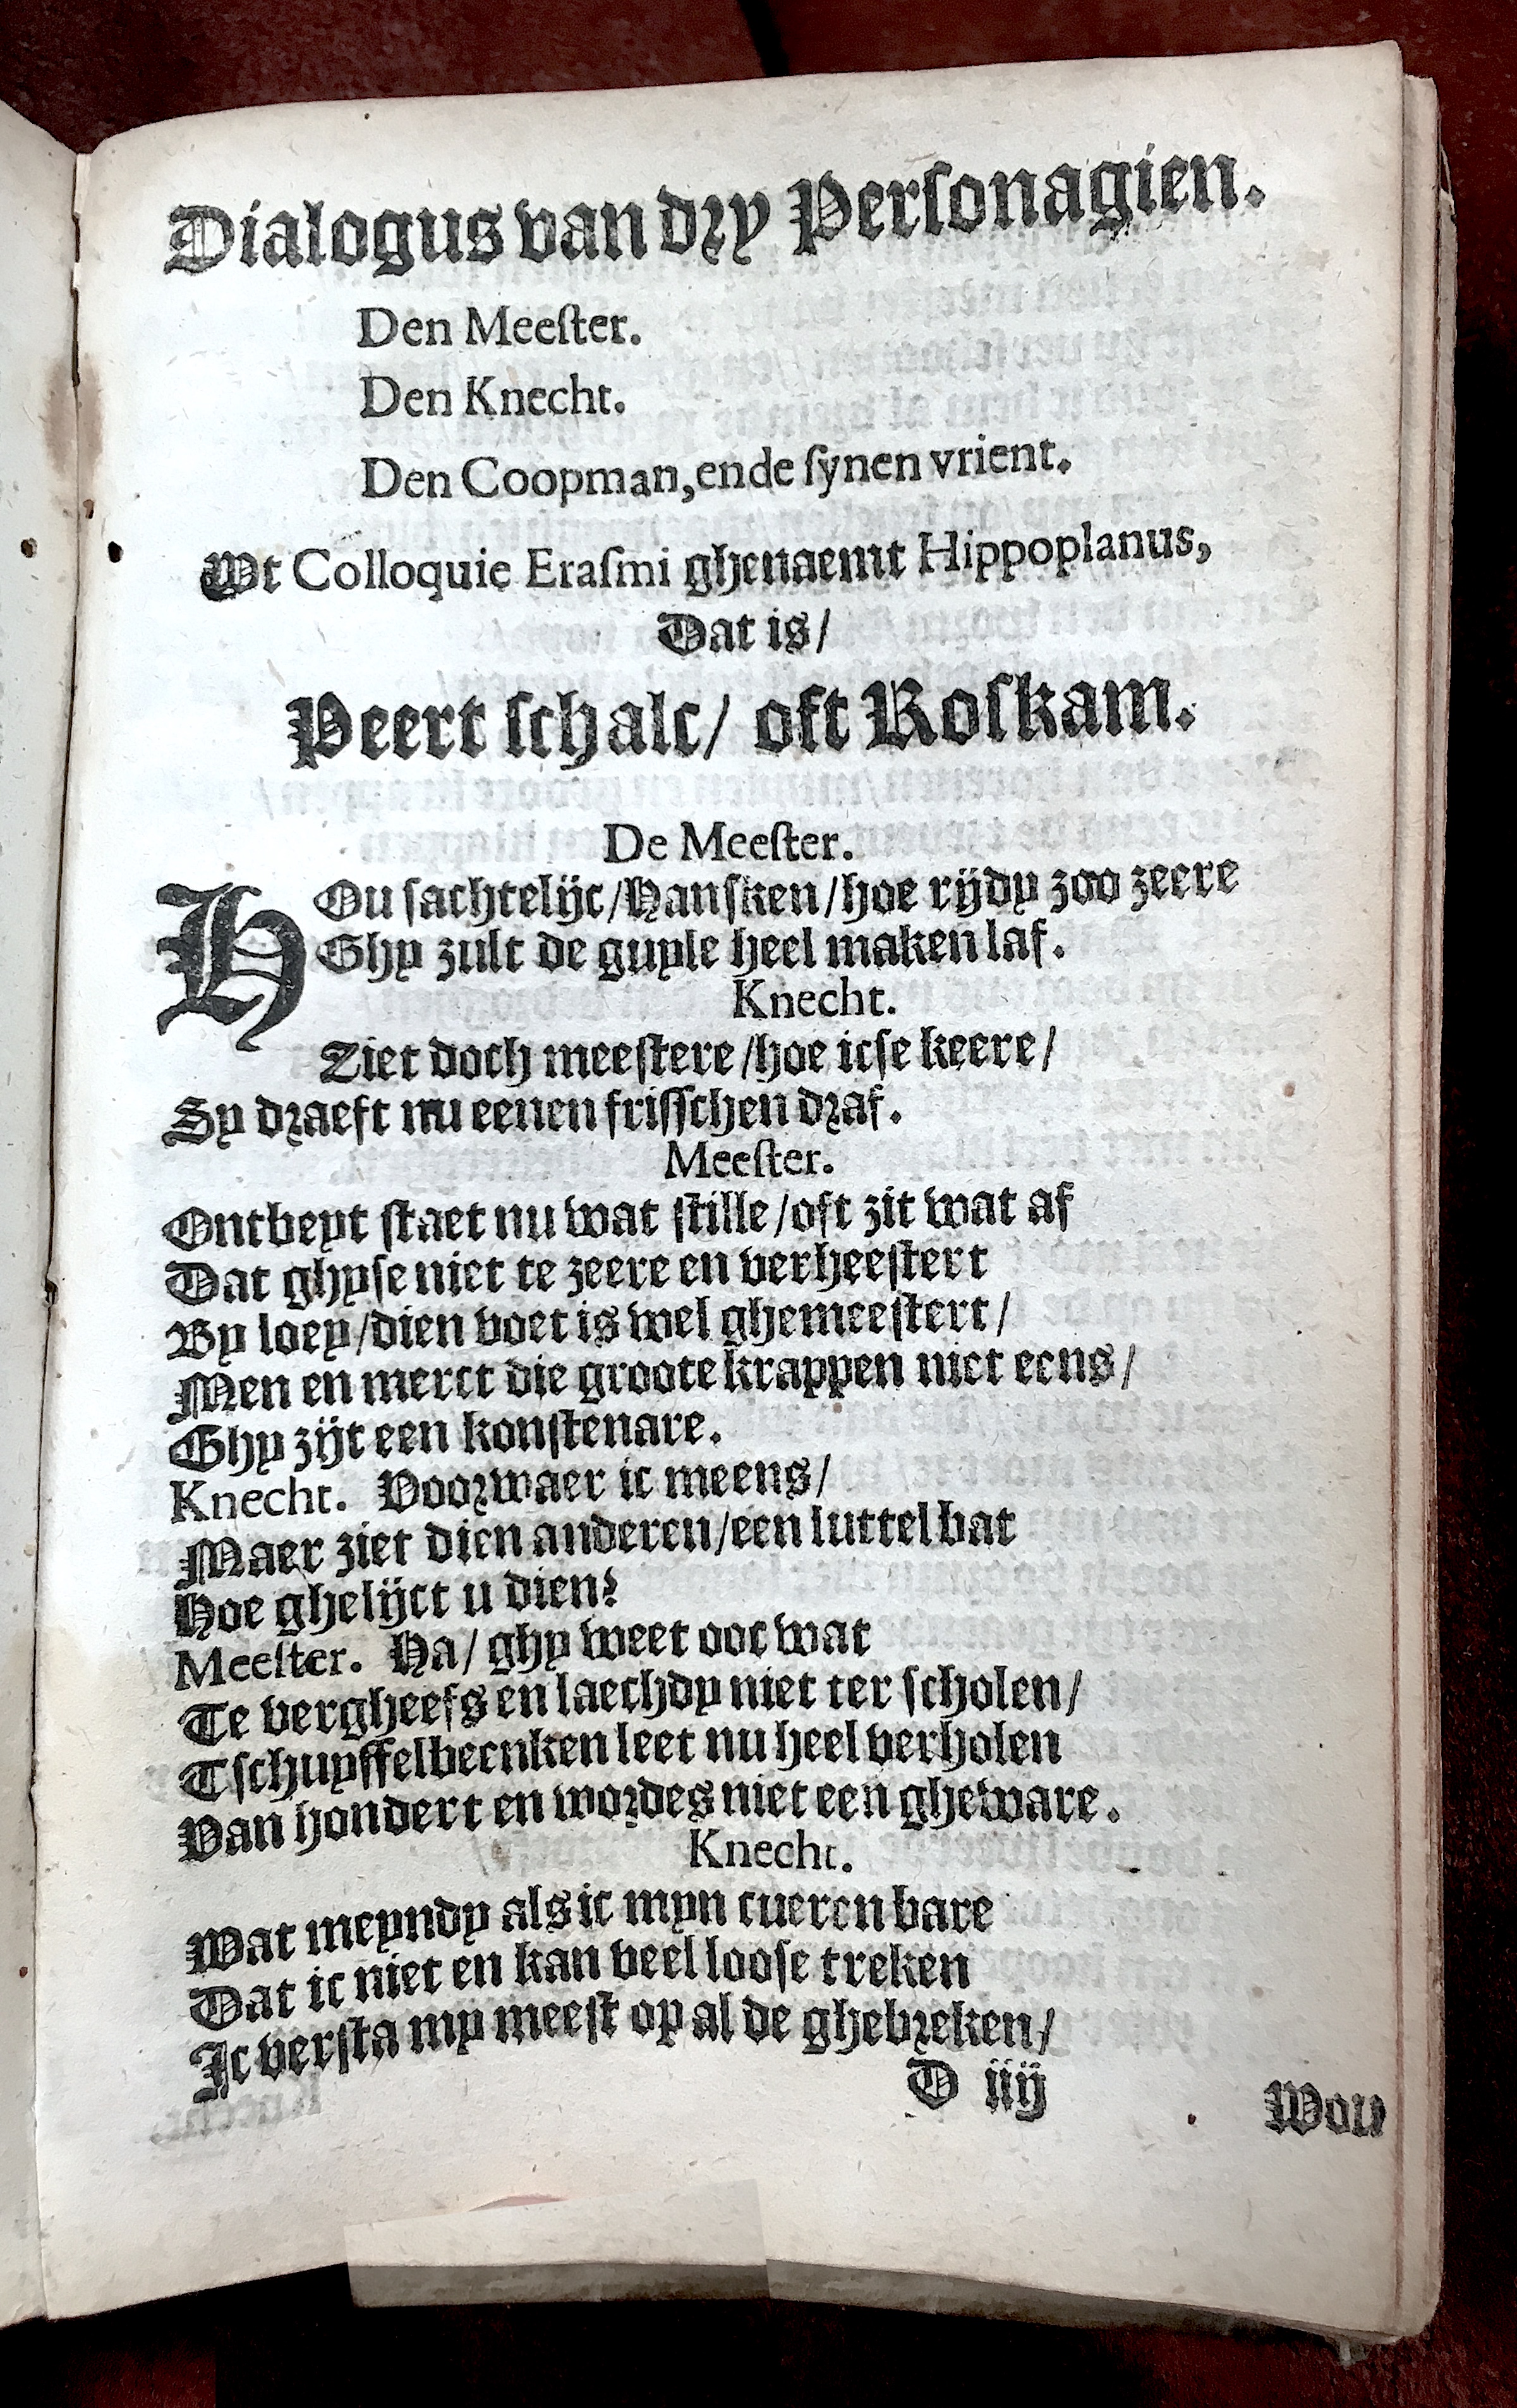 Dialogus van dry Personagien.
Den Meeſter.
Den Knecht.
Den Coopman, ende ſynen vrient.
Wt Colloquie Eraſmi ghenaemt Hippoplanus,
Dat is/
Peert ſchalc/ oft Roſkam.
De Meeſter.
HOu ſachtelijc/Hanſken/hoe rijdy zoo zeere
Ghy zult de guyle heel maken laf.
Knecht.
Ziet doch meeſtere/hoe icſe keere/
Sy draeft nu eenen friſſchen draf.
Meeſter.
Ontbeyt ſtaet nu wat ſtille/oft zit wat af
Dat ghyſe niet te zeere en verheeſtert
By loey/dien voet is wel ghemeeſtert/
Men en merct die groote krappen niet eens/
Ghy zijt een konſtenare.
Knecht. Voorwaer ic meens/
Maer ziet dien anderen/een luttel bat
Hoe ghelijct u dien?
Meeſter. Ha/ ghy weet ooc wat
Te vergheefs en laechdy niet ter ſcholen/
Tſchuyffelbeenken leet nu heel verholen
Van hondert en wordes niet een gheware.
Knecht.
Wat meyndy als ic myn cueren bare
Dat ic niet en kan veel looſe treken
Ic verſta my meeſt op al de ghebreken/
D iiij
Wou